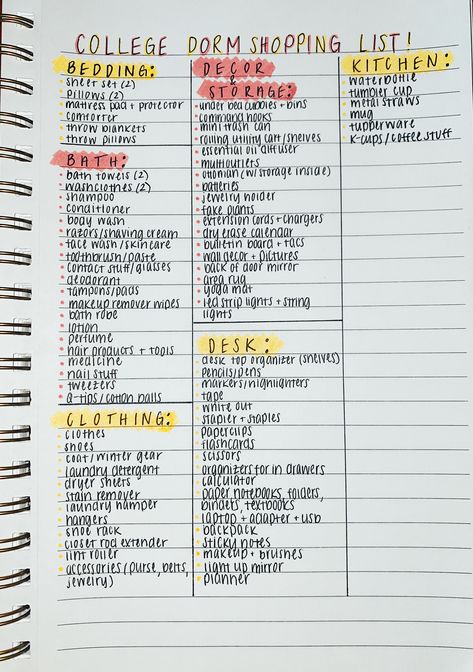 COLLEGE DORM SHOPPING LIST!
BEDDING:
sheet set (2)
pillows (2)
mattress pad + protector
comforter
throw blankets
throw pillows
BATH:
bath towels (2)
washcloths (2)
shampoo
conditioner
body wash
razors/shaving cream
face wash/skincare
toothbrush/paste
contact stuff/glasses
deodorant
tampons/pads
makeup remover wipes
bath robe
lotion
perfume
hair products + tools
medicine
nail stuff
tweezers
q-tips/cotton balls
CLOTHING:
clothes
shoes
coat/winter gear
laundry detergent
dryer sheets
stain remover
laundry hamper
hangers
shoe rack
closet rod extender
lint roller
accessories (purse, belts,
jewelry)
DECOR
&
STORAGE:
under bed cubbies + bins
command hooks
mini trash can
rolling utility cart/shelves
essential oil diffuser
multioutlets
ottoman (w/storage inside)
batteries
jewelry holder
fake plants
extension cords + chargers
dry erase calendar
bulletin board + tacs
wall decor + pictures
back of door mirror
area rug
yoga mat
led strip lights + string
lights
DESK:
desk top organizer (shelves)
pencils/pens
markers/highlighters
tape
white out
stapler + staples
paperclips
flashcards
scissors
organizers for in drawers
calculator
paper notebooks, folders,
binders, textbooks
laptop + adapter + usb
backpack
sticky notes
makeup + brushes
light up mirror
planner
KITCHEN:
waterbottle
tumbler cup
metal straws
mug
tupperware
k-cups/coffee stuff